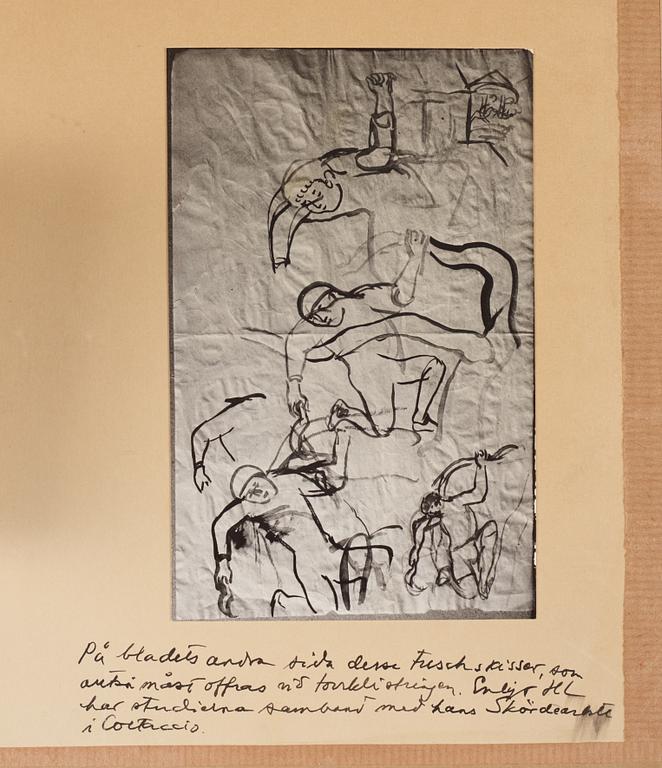 På bladets andra sida dessa tuschskisser, som
måst offras vid torrklistringen. Enligt HL
har studierna samband med hans Skördearbete
i Corteccio.